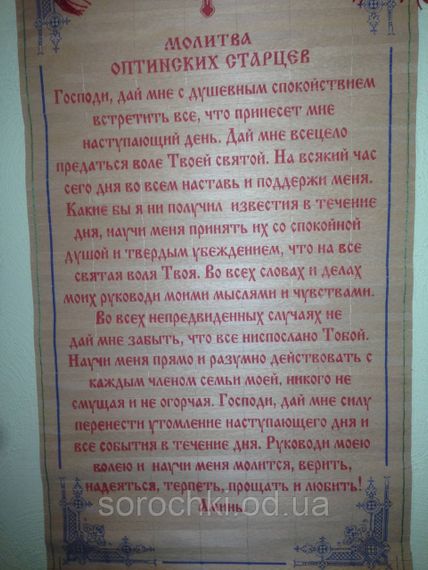 МОЛИТВА
ОПТИНСКИХ СТАРЦЕВ
Господи, дай мне с душевным спокойствием
встретить все, что принесет мне
наступающий день. Дай мне всецело
предаться воле Твоей святой. На всякий час
сего дня во всем наставь и поддержи меня.
Какие бы я ни получил известия в течение
дня, научи меня принять их со спокойной
душой и твердым убеждением, что на все
святая воля Твоя. Во всех словах и делах
моих руководи моими мыслями и чувствами.
Во всех непредвиденных случаях не
дай мне забыть, что все ниспослано Тобой.
Научи меня прямо и разумно действовать с
каждым членом семьи моей, никого не
смущая и не огорчая. Господи, дай мне силу
перенести утомление наступающего дня и
все события в течение дня. Руководи моею
волею и научи меня молится, верить,
надеяться, терпеть, прощать и любить!
Аминь
sorochki.od.ua